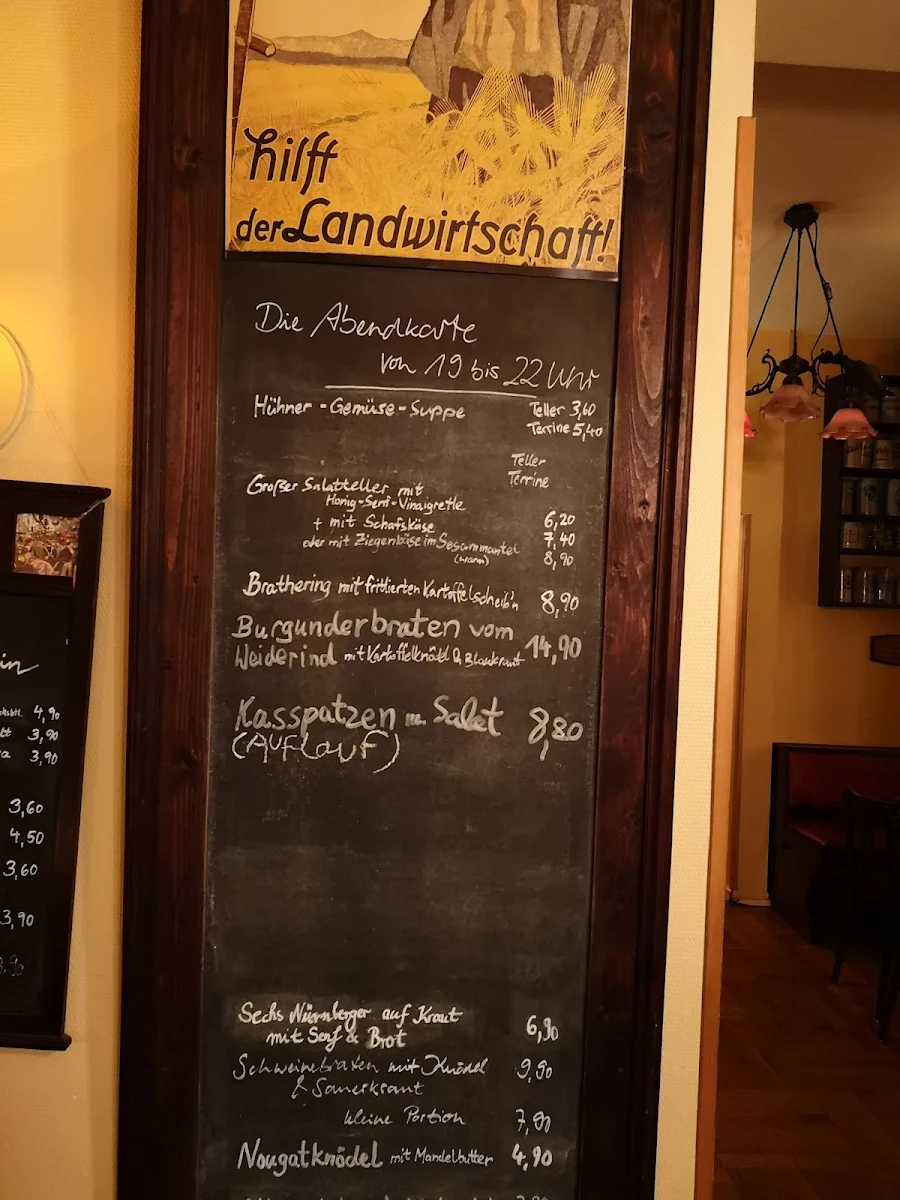 hilft
der Landwirtschaft!
Die Abendkarte
von 19 bis 22 Uhr
Hühner-Gemüse-Suppe Teller 3,60
Terrine 5,40
Teller
Terrine
Großer Salatteller mit
Honig-Senf-Vinaigrette 6,20
+ mit Schafskäse 7,40
oder mit Ziegenkäse im Sesammantel 8,90
(warm)
Brathering mit frittierten Kartoffelscheib'n 8,90
Burgunderbraten vom
Weiderind mit Kartoffelknödl & Blaukraut 14,90
Kasspatzen m. Salat 8,80
(Auflauf)
Sechs Nürnberger auf Kraut
mit Senf & Brot 6,90
Schweinebraten mit Knödel 9,90
& Sauerkraut
kleine Portion 7,90
Nougatknödel mit Mandelbutter 4,90
4,90
3,90
3,90
3,60
4,50
3,60
3,90